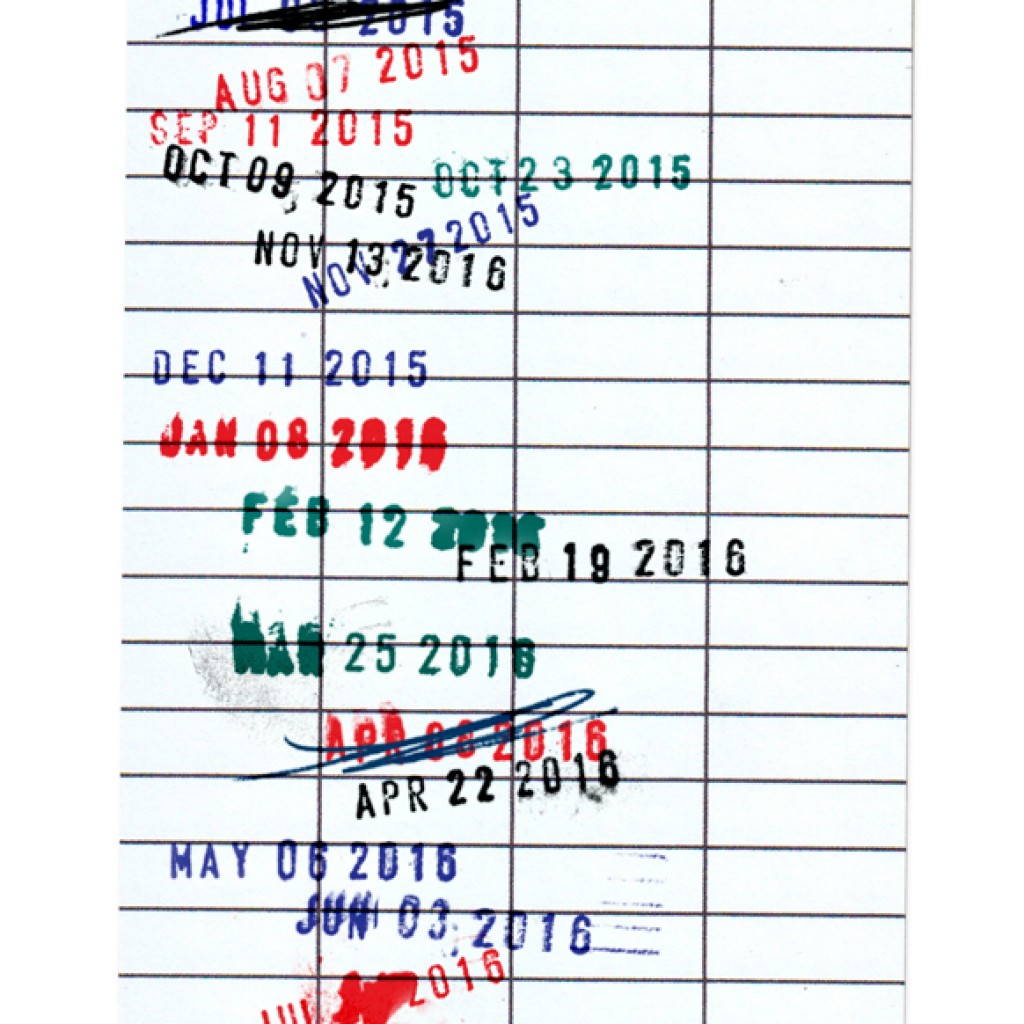 JUL 2015
AUG 07 2015
SEP 11 2015
OCT 09, 2015
OCT 23 2015
NOV 27 2015
NOV 13, 2016
DEC 11 2015
JAN 08 2016
FEB 12 2016
FEB 19 2016
MAR 25 2016
APR 08 2016
APR 22 2016
MAY 06 2016
JUN 03, 2016
JUL 2016